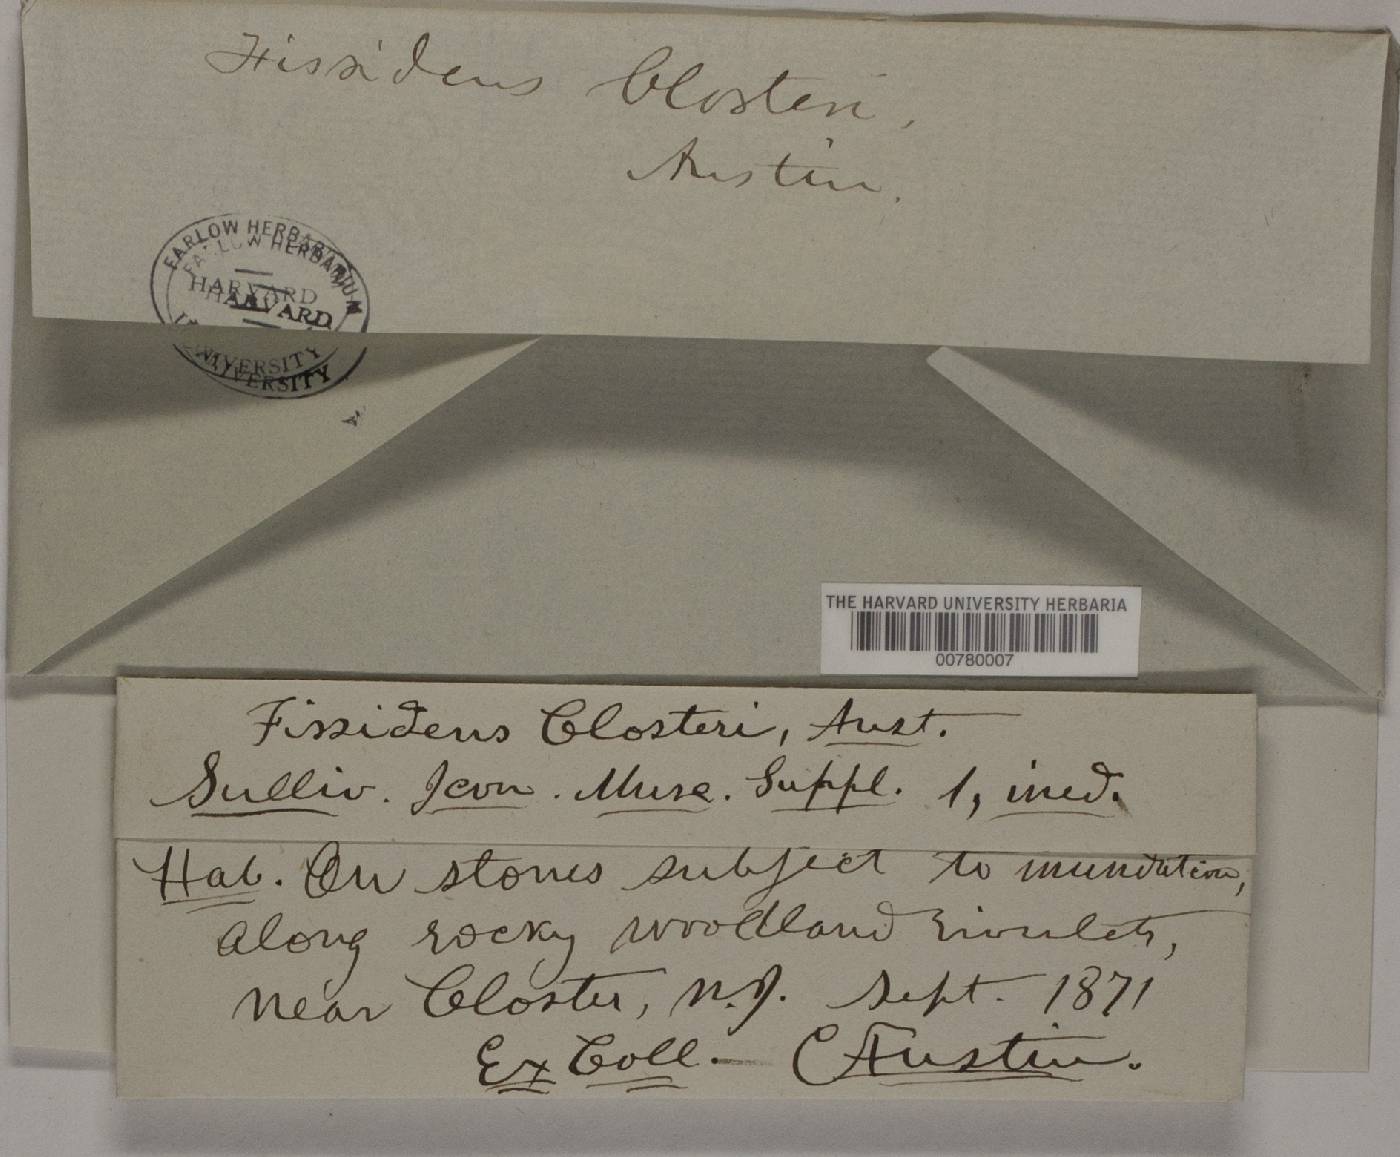 Fissidens Closteri,
Austin.
FARLOW HERBARIUM
HARVARD
UNIVERSITY
THE HARVARD UNIVERSITY HERBARIA
00780007
Fissidens Closteri, Aust.
Sulliv. Icon. Musc. Suppl. 1, ined.
Hab. On stones subject to inundation,
along rocky woodland rivulets,
near Closter, N.J. Sept. 1871
Ex Coll. — C F Austin.